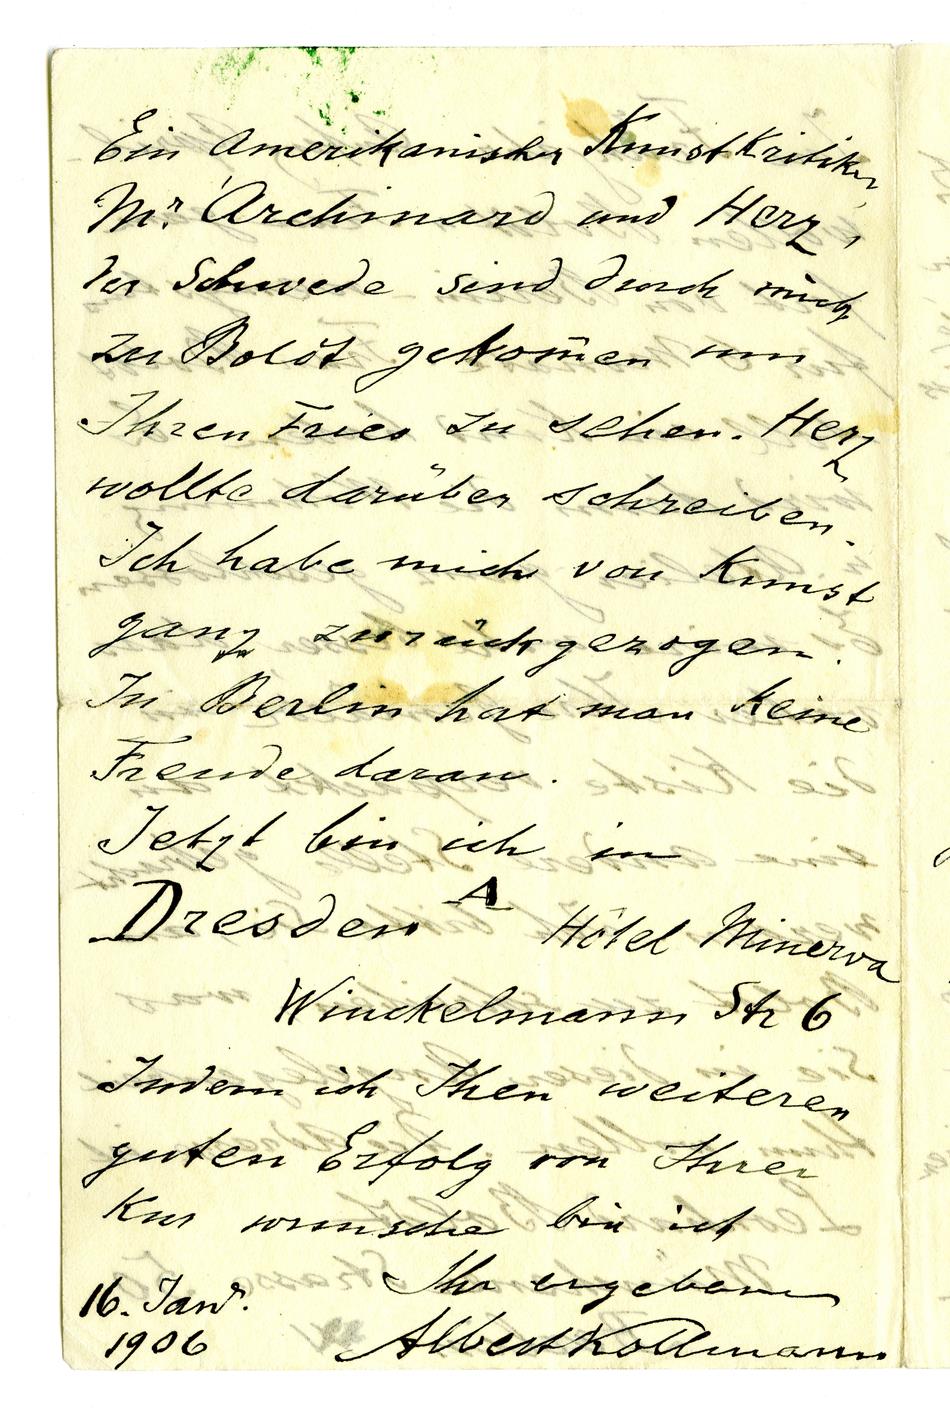 Ein Amerikanischer Kunst Kritiker,
Mr. Archinard und Herz,
der Schwede sind durch mich
zu Boldt gekom̄en um
Ihren Fries zu sehen. Herz
wollte darüber schreiben.
Ich habe mich von Kunst
ganz zurückgezogen.
In Berlin hat man keine
Freude daran.
Jetzt bin ich in
Dresden A Hôtel Minerva
Winckelmann Str 6
Indem ich Ihen weiteren
guten Erfolg von Ihrer
Kur wünsche bin ich
Ihr ergebener
16. Janr. Albert Kollmann
1906